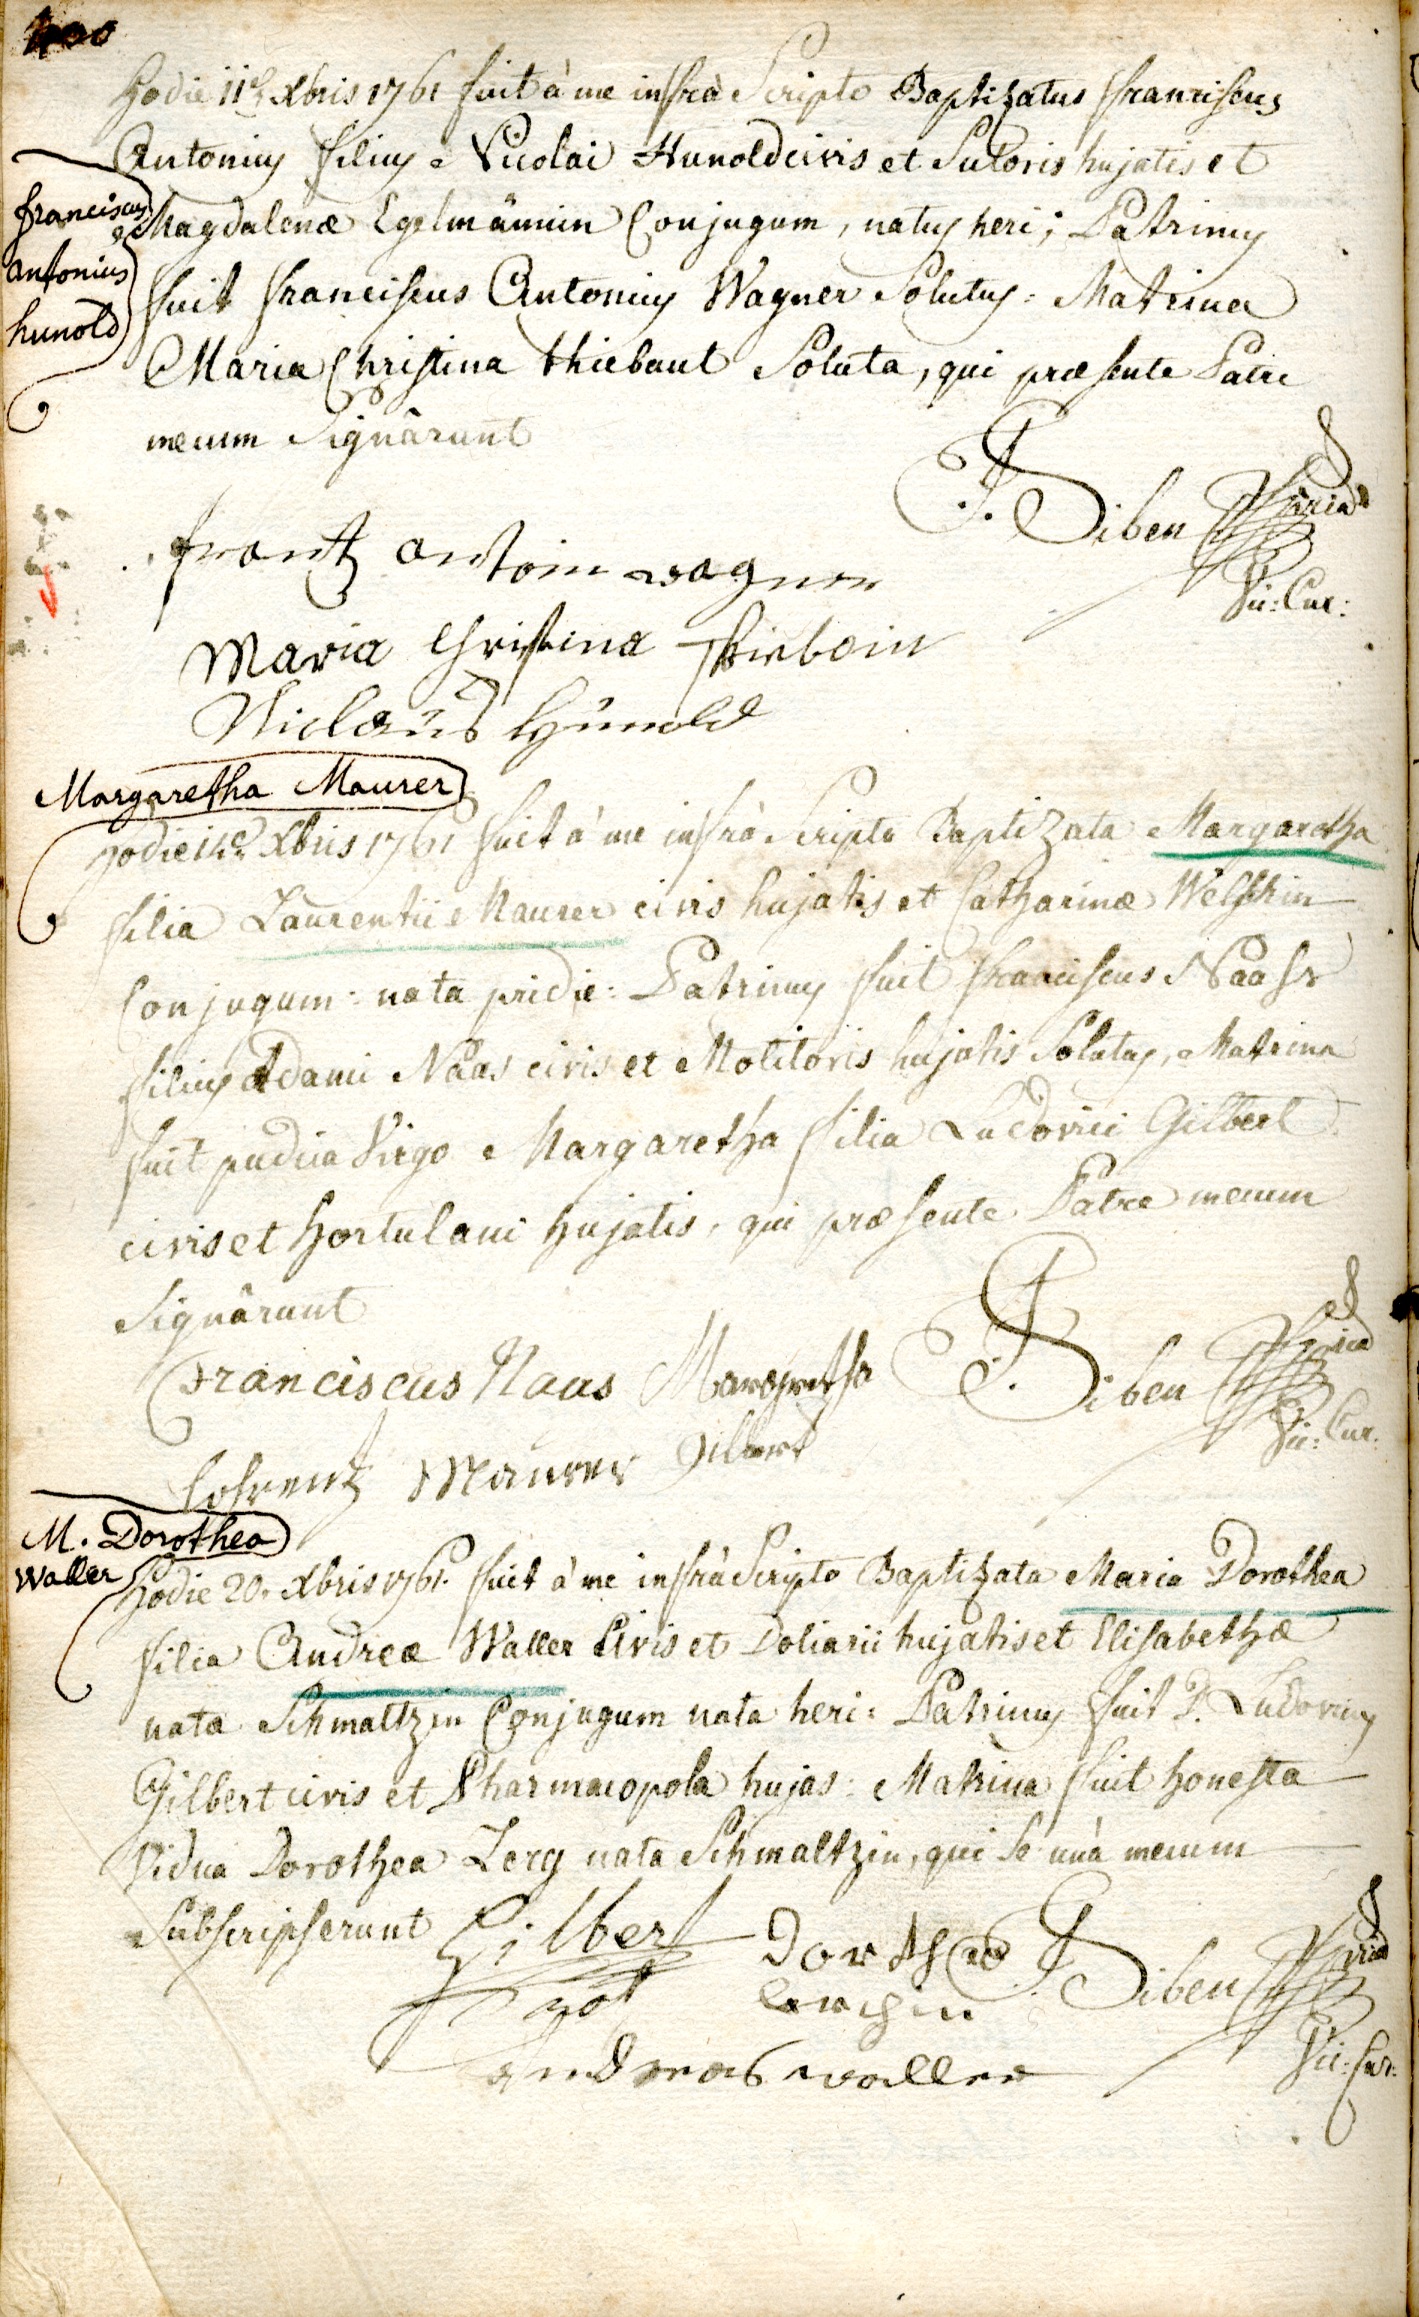 400
Hodie 11ª Xbris 1761 fuit à me infrà Scripto Baptizatus Franciscus
Antonius filius Nicolai Hunold civis et Sutoris hujatis et
Magdalenæ Egelmännin Conjugum, natus heri; Patrinus
fuit Franciscus Antonius Wagner Solutus: Matrina
Maria Christina thiebaut Soluta, qui præsente Patre
mecum Signârunt
franciscus
antonius
hunold
J. Siben
Vic: Cur:
frantz antoni wagner
Maria Christina
Niclaus Hunold
Margaretha Maurer
Hodie Xbris 1761 fuit à me infrà Scripto Baptizata Margaretha
filia Laurentii Maurer civis hujatis et Catharinæ Welschin
Conjugum: nata pridie: Patrinus fuit Franciscus Naass
filius Adami Naas civis et Molitoris hujatis Solutus, Matrina
fuit pudica Virgo Margaretha filia Ludovici Gilbert
civis et hortulani hujatis, qui præsente Patre mecum
Signârunt
Franciscus Naas Margretha
Gilbert
J. Siben
Vic: Cur:
Lohrentz Maurer
M. Dorothea
Waller
Hodie 20. Xbris 1761. fuit à me infrà Scripto Baptizata Maria Dorothea
filia Andreæ Waller Civis et Doliarii hujatis et Elisabethæ
nata Schmaltzin Conjugum nata heri: Patrinus fuit D. Ludovicus
Gilbert civis et Pharmacopola hujas: Matrina fuit honesta
Vidua Dorothea Lerg nata Schmaltzin, qui se unà mecum
Subscripserunt
Gilbert
Dorthea
J. Siben
Vic: Cur:
andreas waller